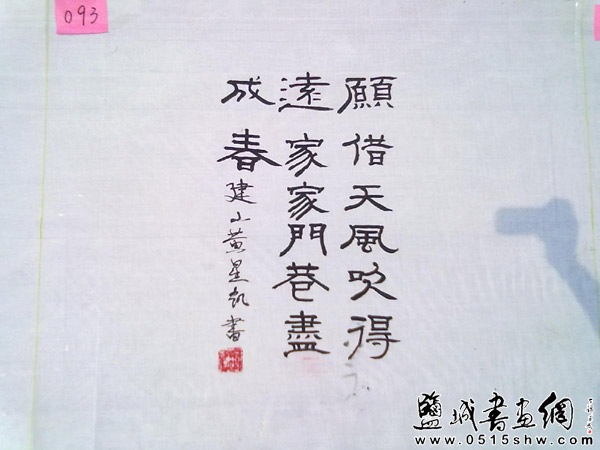 093
願借天風吹得
遠家家門巷盡
成春
黃星凱書
鹽城書画網
www.0515shw.com